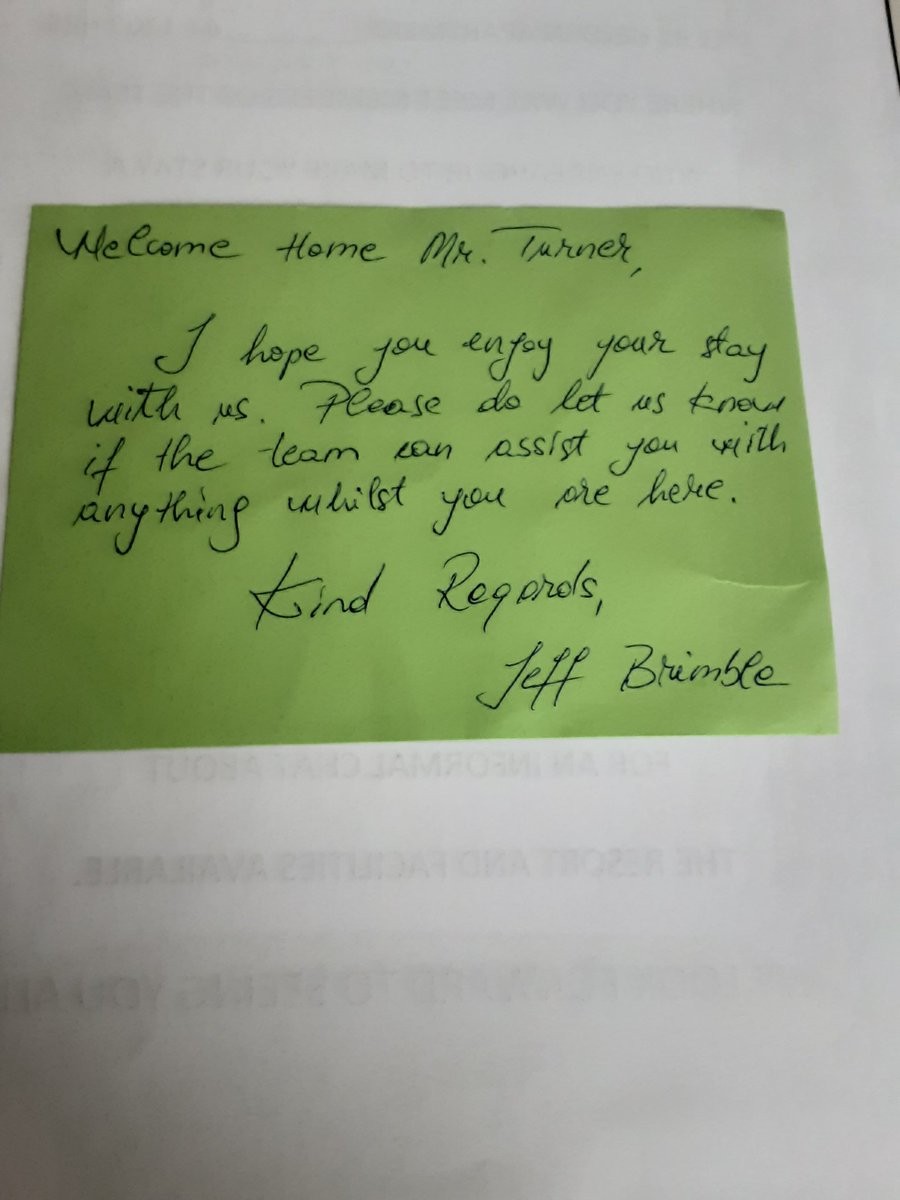 Welcome Home Mr. Turner,
I hope you enjoy your stay
with us. Please do let us know
if the team can assist you with
anything whilst you are here.
Kind Regards,
Jeff Brimble
FOR AN INFORMAL CHAT ABOUT
THE RESORT AND FACILITIES AVAILABLE.
LOOK FORWARD TO SEEING YOU ALL